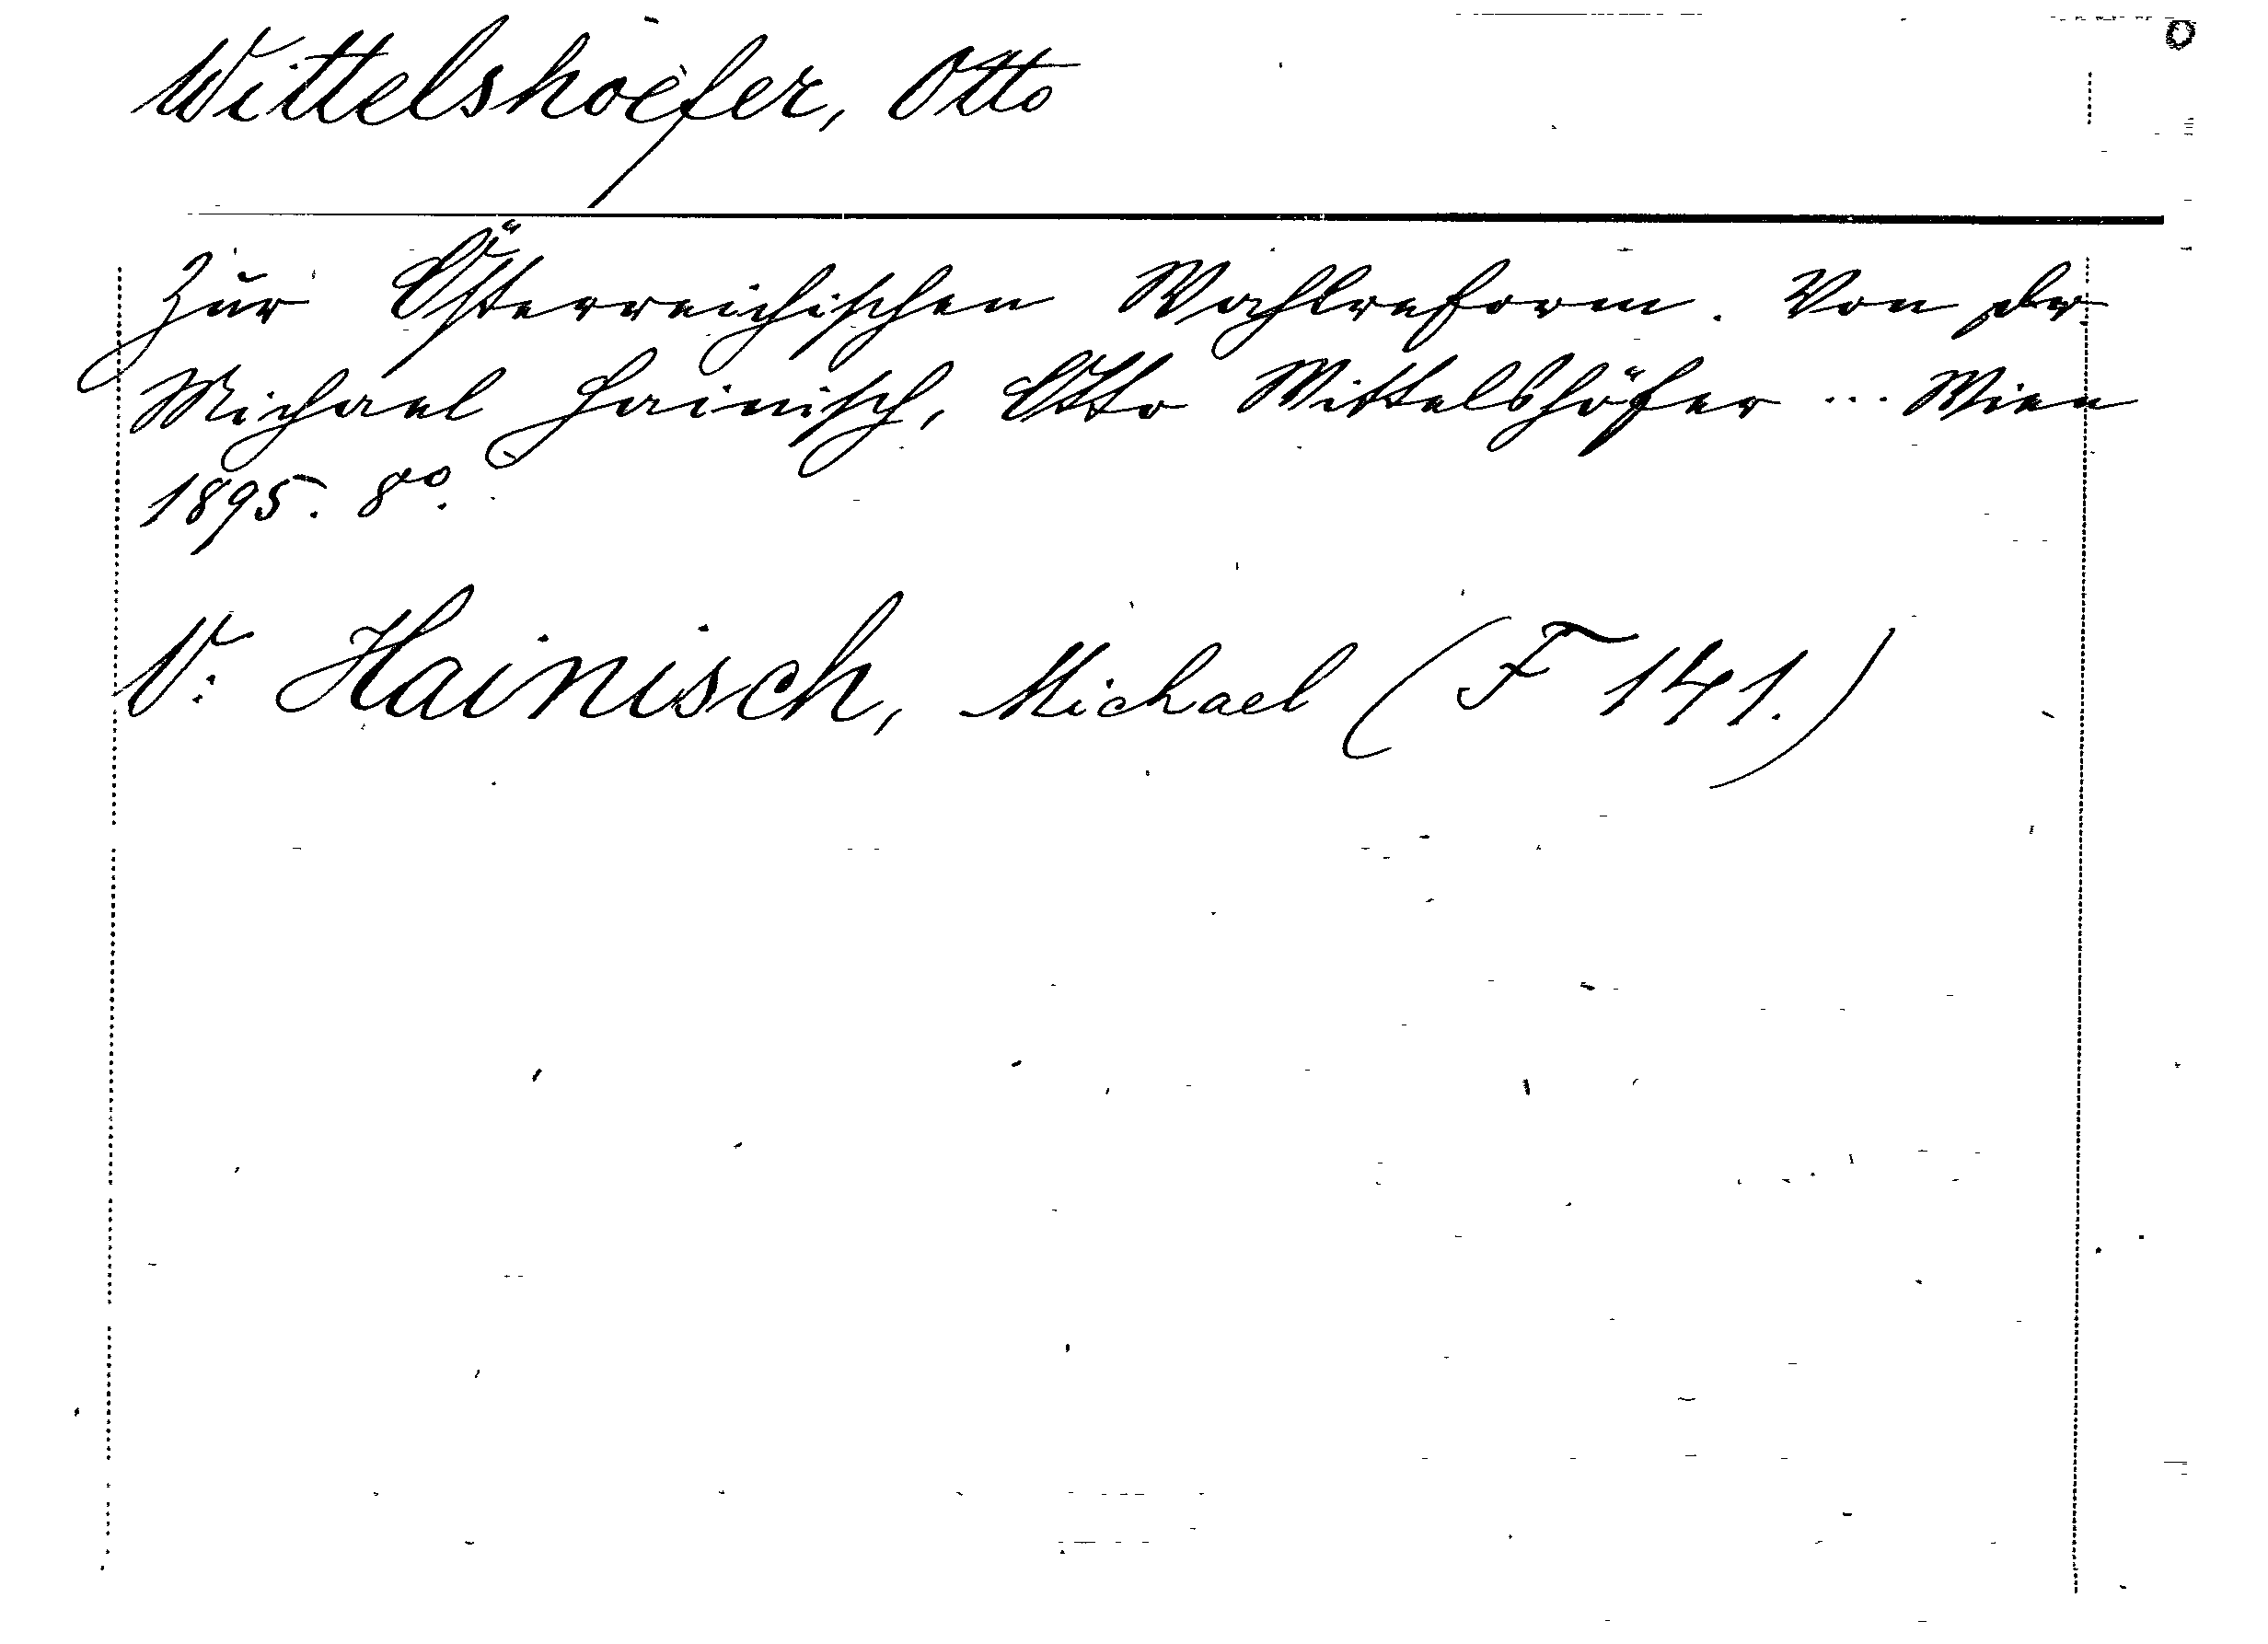 Wittelshoefer, Otto
Zur Österreichischen Wahlreform. Von Dr.
Michael Hainisch, Otto Wittelshöfer ... Wien
1895. 8º.
V: Hainisch, Michael (F 141.)